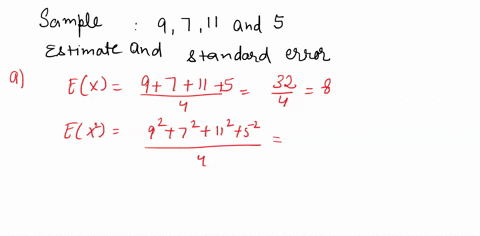 Sample : 9, 7, 11 and 5
Estimate and standard error
a) E(x) = 9+7+11+5/4 = 32/4 = 8
E(x²) = 9²+7²+11²+5²/4 =